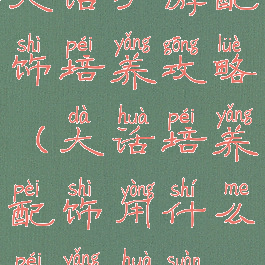 shì péi yǎng gōng lüè
饰培养攻略
dà huà péi yǎng
（大话培养
pèi shì yòng shí me
配饰用什么
péi yǎng huà suàn